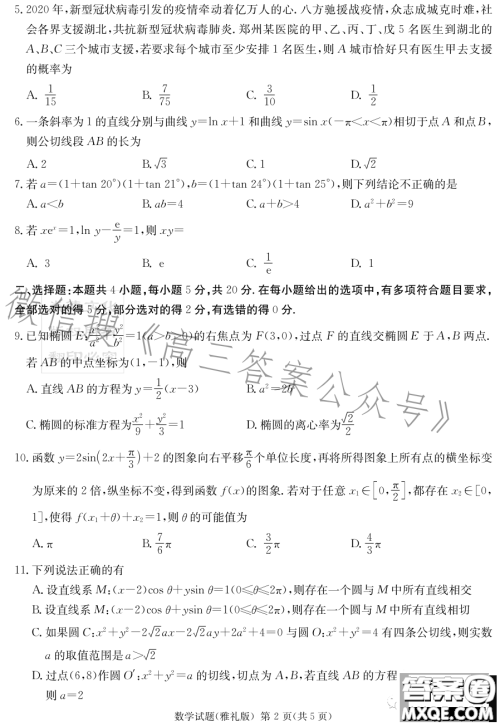 5. 2020 年,新型冠状病毒引发的疫情牵动着亿万人的心. 八方驰援战疫情,众志成城克时难,社
会各界支援湖北,共抗新型冠状病毒肺炎. 郑州某医院的甲、乙、丙、丁、戊 5 名医生到湖北的
A、B、C 三个城市支援,若要求每个城市至少安排 1 名医生,则 A 城市恰好只有医生甲去支援
的概率为
A. 1/15 B. 7/75 C. 3/10 D. 1/2
6. 一条斜率为 1 的直线分别与曲线 y=ln x+1 和曲线 y=sin x(-π<x<π)相切于点 A 和点 B,
则公切线段 AB 的长为
A. 2 B. √3 C. 1 D. √2
7. 若 a=(1+tan 20°)(1+tan 21°),b=(1+tan 24°)(1+tan 25°),则下列结论不正确的是
A. a<b B. ab=4 C. a+b>4 D. a²+b²=9
8. 若 xeˣ=1,ln y-e/y=1,则 xy=
A. 3 B. e C. 1/e D. 1
二、选择题:本题共 4 小题,每小题 5 分,共 20 分. 在每小题给出的选项中,有多项符合题目要求,
全部选对的得 5 分,部分选对的得 2 分,有选错的得 0 分.
9. 已知椭圆 E:x²/a²+y²/b²=1(a>b>0)的右焦点为 F(3,0),过点 F 的直线交椭圆 E 于 A,B 两点.
若 AB 的中点坐标为(1,-1),则
A. 直线 AB 的方程为 y=1/2(x-3) B. a²=2b²
C. 椭圆的标准方程为x²/9+y²/3=1 D. 椭圆的离心率为√2/2
10. 函数 y=2sin(2x+π/3)+2 的图象向右平移π/6个单位长度,再将所得图象上所有点的横坐标变
为原来的 2 倍,纵坐标不变,得到函数 f(x)的图象. 若对于任意 x₁∈[0,π/2],都存在 x₂∈[0,
1],使得 f(x₁+θ)+x₂=1,则 θ 的可能值为
A. π B. 7/6π C. 3/2π D. 4/3π
11. 下列说法正确的有
A. 设直线系 M:(x-2)cos θ+ysin θ=1(0≤θ≤2π),则存在一个圆与 M 中所有直线相交
B. 设直线系 M:(x-2)cos θ+ysin θ=1(0≤θ≤2π),则存在一个圆与 M 中所有直线相切
C. 如果圆 C:x²+y²-2√2ax-2√2ay+2a²+4=0 与圆 O:x²+y²=4 有四条公切线,则实数
a 的取值范围是 a>√2
D. 过点(6,8)作圆 O′:x²+y²=a 的切线,切点为 A,B,若直线 AB 的方程
则 a=2
数学试题(雅礼版) 第 2 页(共 5 页)
微信搜《高三答案公众号》
答案圈
MXQE.COM